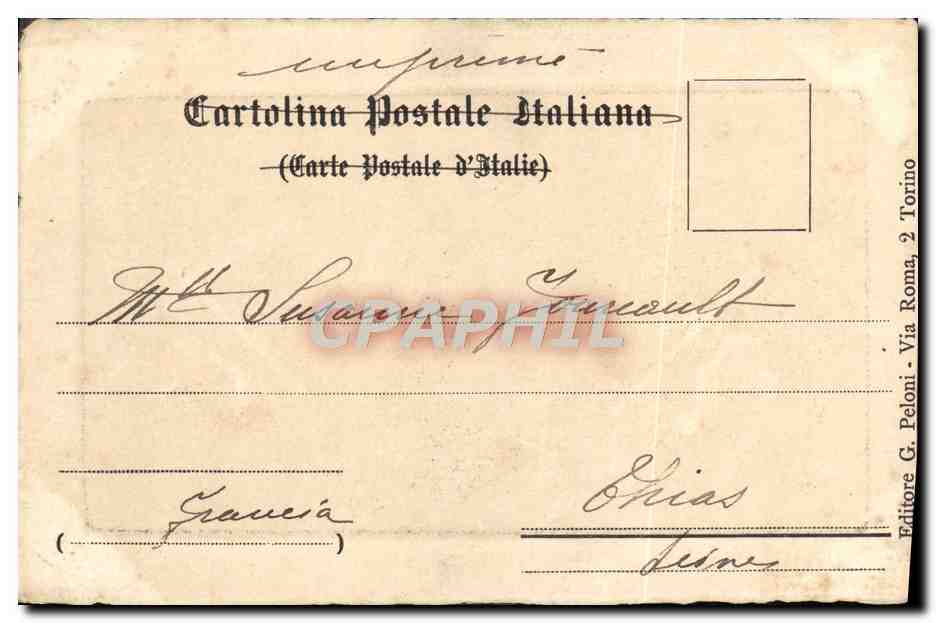 imprimé
Cartolina Postale Italiana
(Carte Postale d'Italie)
Mlle Susanne
CPAPHIL
Thias
Francia
( )
Editore G. Peloni - Via Roma, 2 Torino